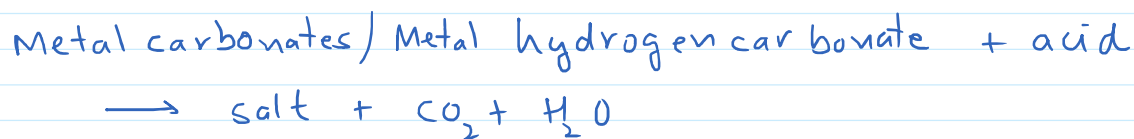 Metal carbonates / Metal hydrogen carbonate + acid
⟶ salt + CO₂ + H₂O